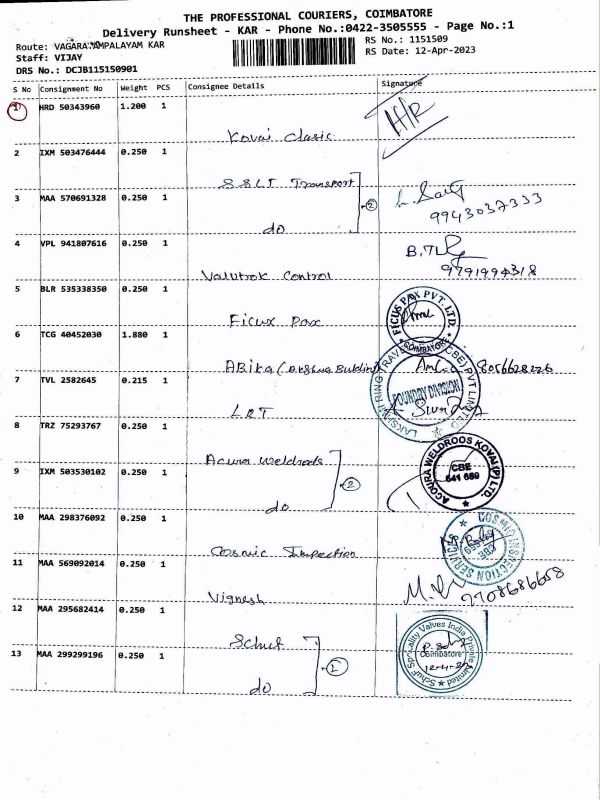 THE PROFESSIONAL COURIERS, COIMBATORE
Delivery Runsheet - KAR - Phone No.:0422-3505555 - Page No.:1
Route: VAGARAYAMPALAYAM KAR
RS No.: 1151509
Staff: VIJAY
RS Date: 12-Apr-2023
DRS No.: DCJB115150901
S No Consignment No Weight PCS Consignee Details Signature
1 HRD 50343960 1.200 1
Kovai Clasic
2 IXM 503476444 0.250 1
SSLT Transport
3 MAA 570691328 0.250 1
② 9943037333
do
4 VPL 941807616 0.250 1
9791994318
Valutrok Control
5 BLR 535338350 0.250 1
FICUS PAX PVT. LTD. COIMBATORE
Ficux Pax
6 TCG 40452030 1.880 1
ABika
7 TVL 2582645 0.215 1
FOUNDRY DIVISION
LRT
8 TRZ 75293767 0.250 1
Acura weldrods
ACOURA WELDROOS KOVAI (P) LTD.
CBE
641 659
9 IXM 503530102 0.250 1
②
do
10 MAA 298376092 0.250 1
COSMIC INSPECTION SERVICES
Cosmic Inspection
11 MAA 569092014 0.250 1
Vignesh
12 MAA 295682414 0.250 1
Schuf
Schuf Speciality Valves India Private Limited
Coimbatore
13 MAA 299299196 0.250 1
②
do